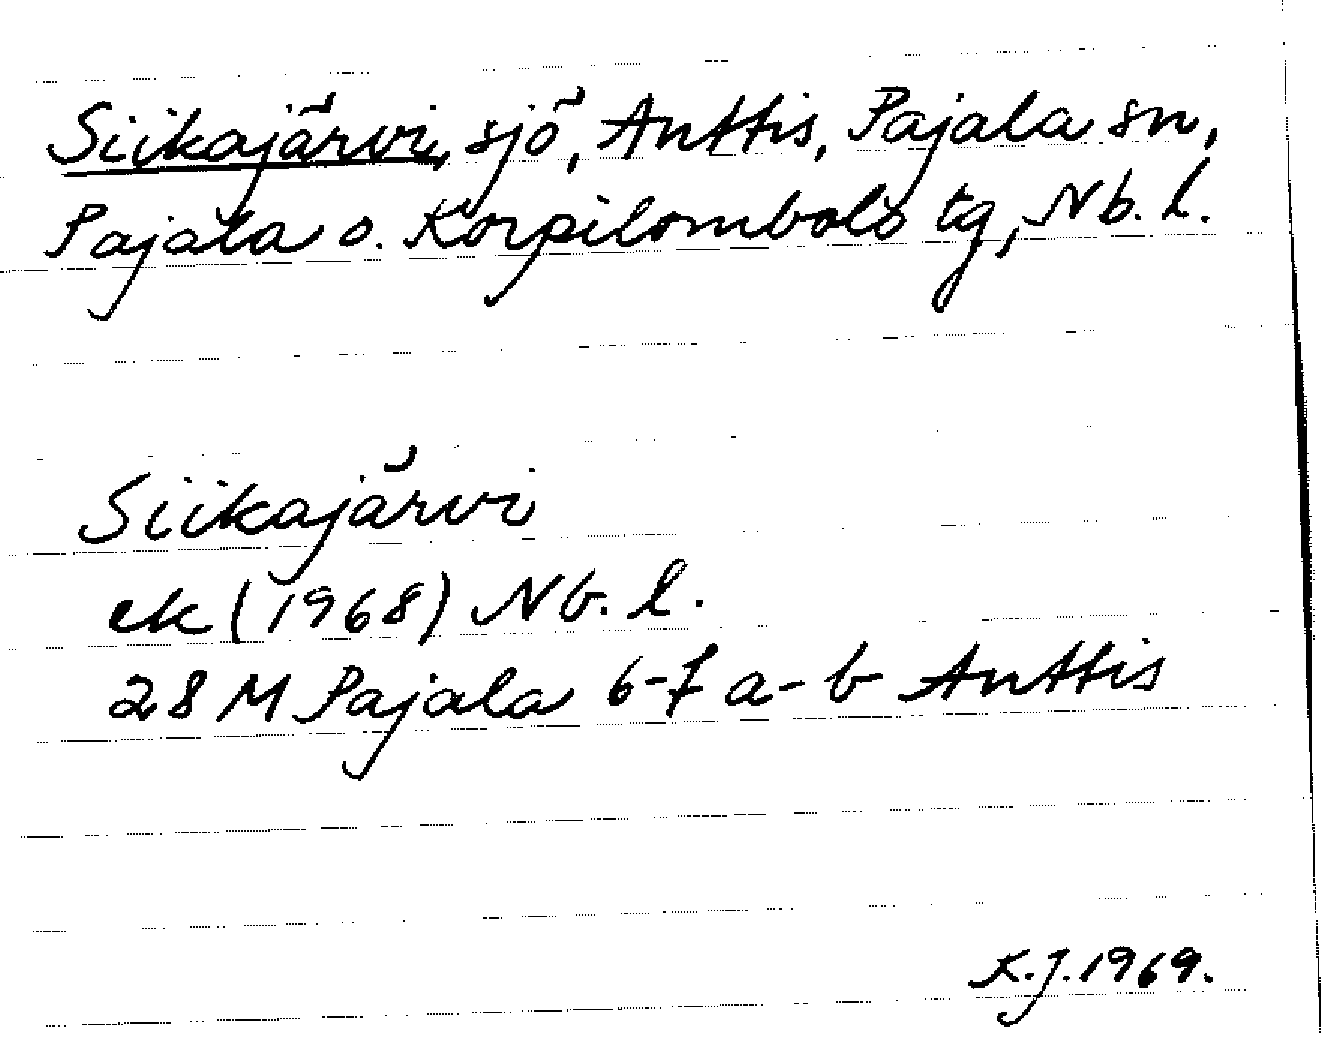 Siikajärvi, sjö, Anttis, Pajala sn,
Pajala o. Korpilombolo tg, Nb. l.
Siikajärvi
ek (1968) Nb. l.
28 M Pajala 6-7 a-b Anttis
K.J. 1969.